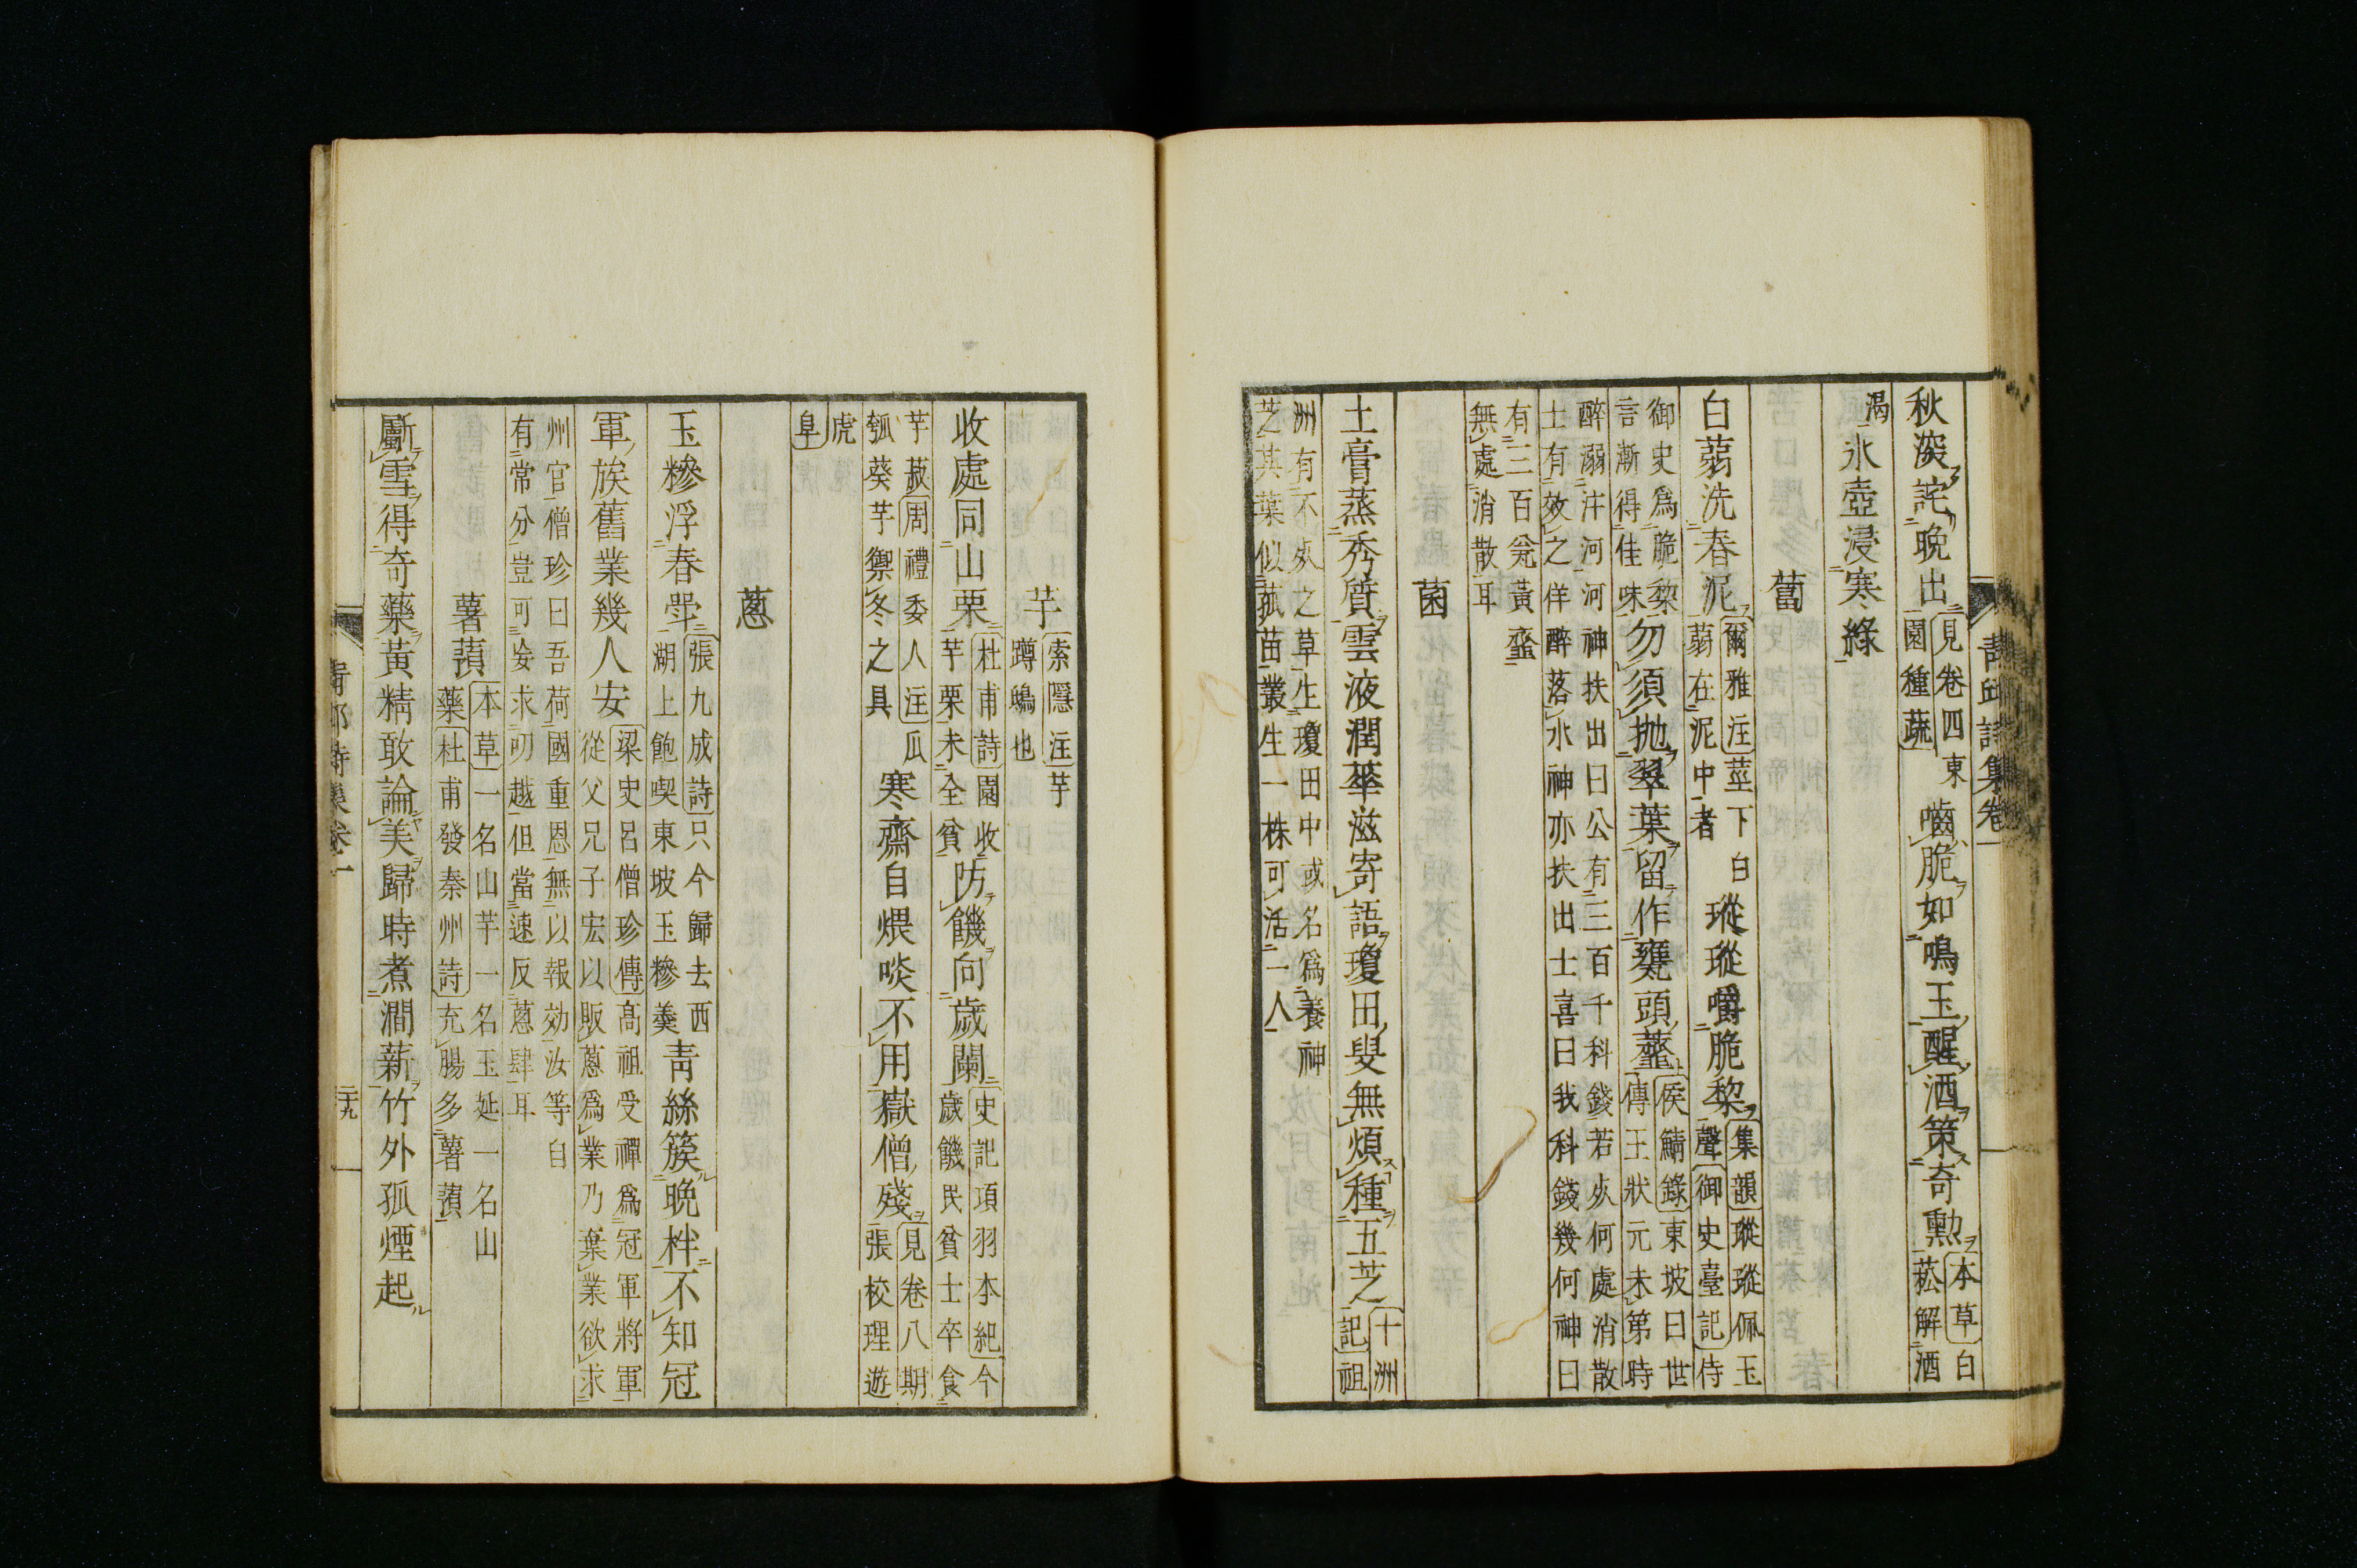 靑邱詩集卷一
秋深詫晚出
見卷四東
園種蔬
嚙脆如鳴玉醒酒策奇勲
本草白
菘解酒
渴
氷壺浸寒綠
蔔
白蒻洗春泥
爾雅注莖下白
蒻在泥中者
瑽瑽嚼脆棃
集韻瑽瑽佩玉
聲御史臺記侍
御史爲脆棃
言漸得佳味
勿須抛翠葉留作甕頭虀
侯鯖錄東坡曰世
傳王狀元未第時
醉溺汴河河神扶出曰公有三百千科錢若死何處消散
士有效之佯醉落水神亦扶出士喜曰我科錢幾何神曰
有三百瓮黃虀
無處消散耳
菌
土膏蒸秀質雲液潤華滋寄語瓊田叟無煩種五芝
十洲
記祖
洲有不死之草生瓊田中或名爲養神
芝其葉似菰苗叢生一株可活一人
芋
索隱注芋
蹲鴟也
收處同山栗
杜甫詩園收
芋栗未全貧
防饑向歲闌
史記項羽本紀今
歲饑民貧士卒食
芋菽周禮委人注瓜
瓠葵芋禦冬之具
寒齋自煨啖不用嶽僧殘
見卷八期
張校理遊
虎
阜
蔥
玉糝浮春甼
張九成詩只今歸去西
湖上飽喫東坡玉糝羮
靑絲簇晚柈不知冠
軍族舊業幾人安
梁史呂僧珍傳高祖受禪爲冠軍將軍
從父兄子宏以販蔥爲業乃棄業欲求
州官僧珍曰吾荷國重恩無以報効汝等自
有常分豈可妄求叨越但當速反蔥肆耳
薯蕷
本草一名山芋一名玉延一名山
藥杜甫發秦州詩充腸多薯蕷
斸雪得奇藥黃精敢論美歸時煮澗薪竹外孤煙起
靑邱詩集卷一
二十九